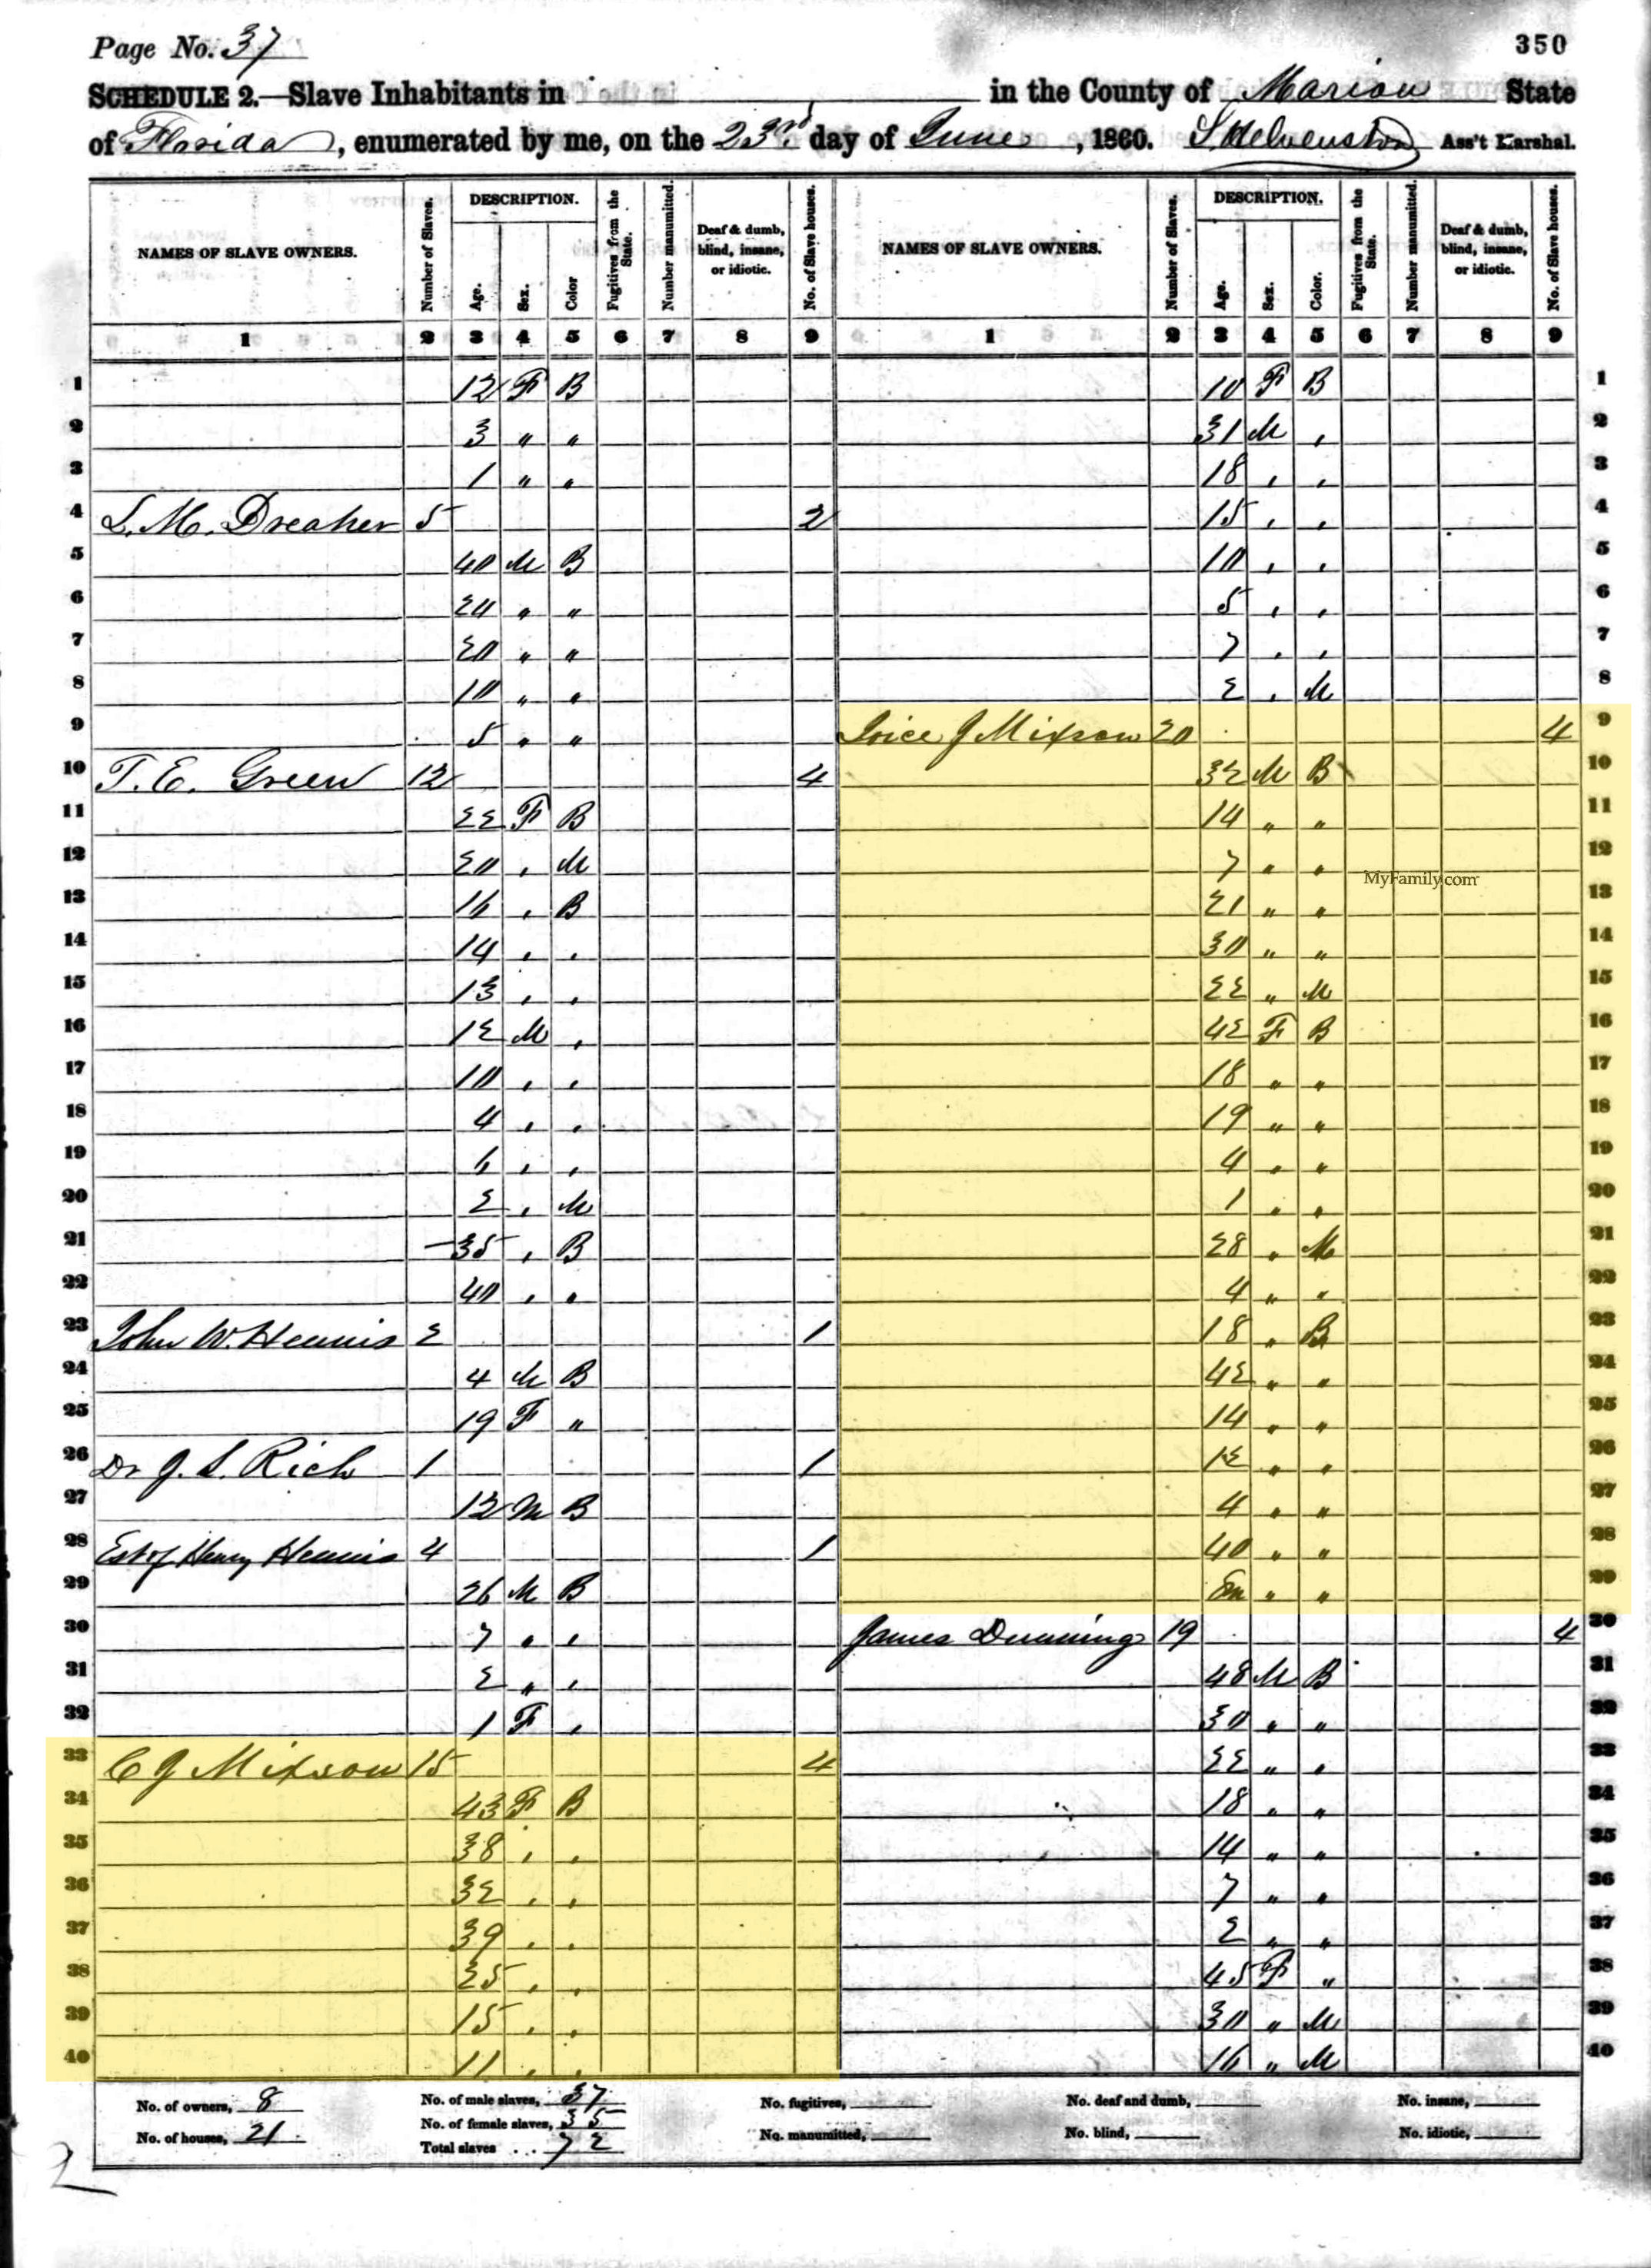 Page No. 37 350
SCHEDULE 2.—Slave Inhabitants in in the County of Marion State
of Florida, enumerated by me, on the 23rd day of June, 1860. S Helvenston Ass't Marshal.
NAMES OF SLAVE OWNERS. Number of Slaves. DESCRIPTION. Age. Sex. Color Fugitives from the State. Number manumitted. Deaf & dumb, blind, insane, or idiotic. No. of Slave houses. NAMES OF SLAVE OWNERS. Number of Slaves. DESCRIPTION. Age. Sex. Color. Fugitives from the State. Number manumitted. Deaf & dumb, blind, insane, or idiotic. No. of Slave houses.
1 2 3 4 5 6 7 8 9 1 2 3 4 5 6 7 8 9
1 12 F B 10 F B 1
2 3 " " 31 M , 2
3 1 " " 18 , , 3
4 L. M. Dreaher 5 2 15 , , 4
5 40 M B 10 , , 5
6 24 " " 5 , , 6
7 20 " " 7 , , 7
8 10 " " 2 , M 8
9 5 " " Joice J Mixson 20 4 9
10 T. E. Green 12 4 32 M B 10
11 22 F B 14 " " 11
12 20 , M 7 " " 12
MyFamily.com
13 16 , B 21 " " 13
14 14 , , 30 " " 14
15 13 , , 22 " M 15
16 12 M , 42 F B 16
17 10 , , 18 " " 17
18 4 , , 19 " " 18
19 6 , , 4 " " 19
20 2 , M 1 " " 20
21 35 , B 28 " M 21
22 40 , , 4 " " 22
23 John W. Hennis 2 1 18 " B 23
24 4 M B 42 " " 24
25 19 F " 14 " " 25
26 Dr J. S. Rich 1 1 12 " " 26
27 12 M B 4 " " 27
28 Est of Henry Hennis 4 1 40 " " 28
29 26 M B 8m " " 29
30 7 " , James Dunning 19 4 30
31 2 " , 48 M B 31
32 1 F , 30 " " 32
33 C J Mixson 15 4 22 " " 33
34 43 F B 18 " " 34
35 38 , , 14 " " 35
36 32 , , 7 " " 36
37 39 , , 2 " " 37
38 25 , , 45 F " 38
39 15 , , 30 " M 39
40 11 , , 16 " M 40
No. of owners, 8 No. of male slaves, 37 No. fugitives, No. deaf and dumb, No. insane,
No. of houses, 21 No. of female slaves, 35 No. manumitted, No. blind, No. idiotic,
Total slaves 72